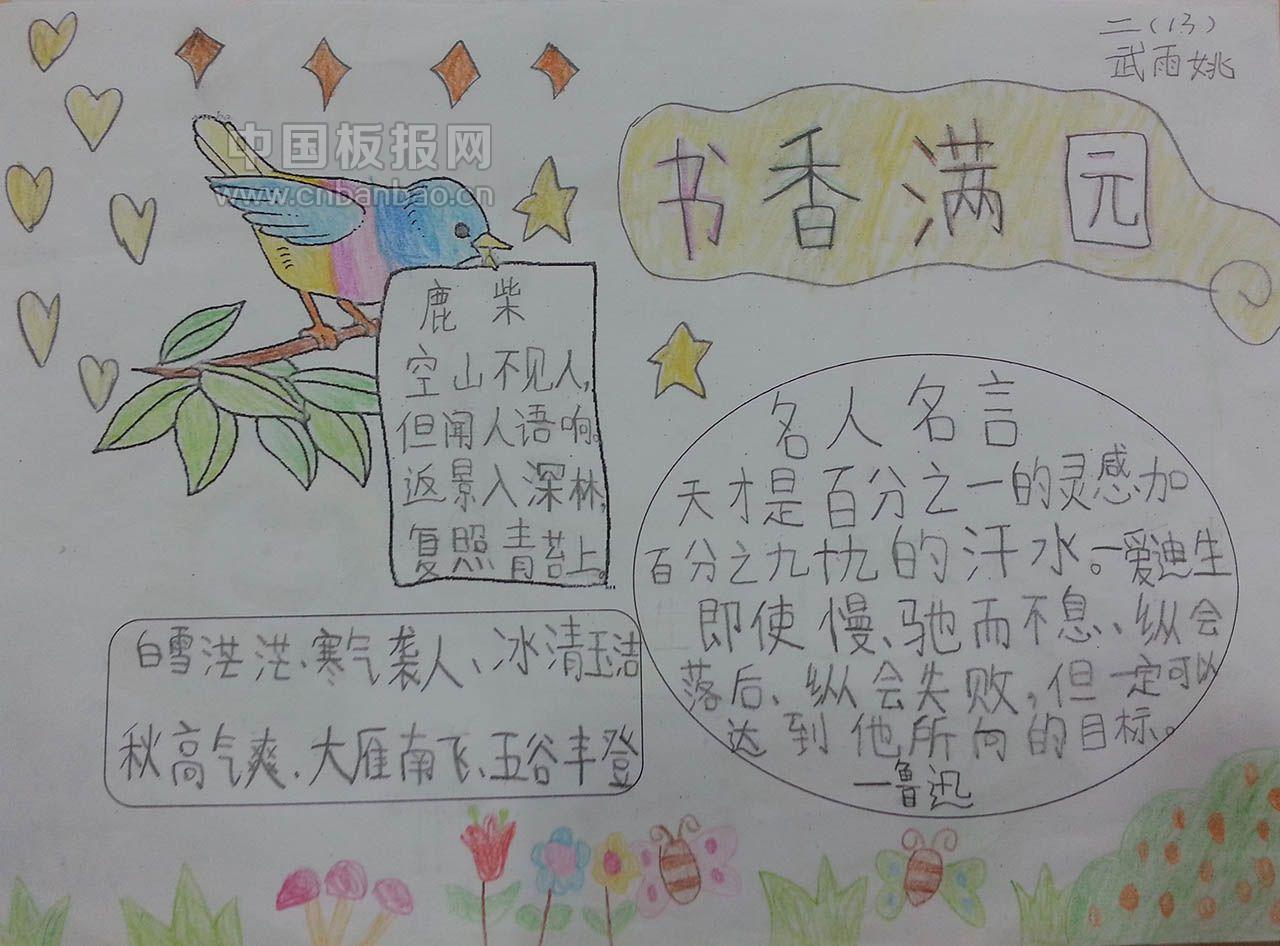 二（13）
武雨姚
中国板报网
www.cnbanbao.cn
书香满园
鹿柴
空山不见人，
但闻人语响。
返景入深林，
复照青苔上。
名人名言
天才是百分之一的灵感加
百分之九十九的汗水。一爱迪生
即使慢、驰而不息、纵会
落后、纵会失败，但一定可以
达到他所向的目标。
一鲁迅
白雪茫茫、寒气袭人、冰清玉洁
秋高气爽、大雁南飞、五谷丰登